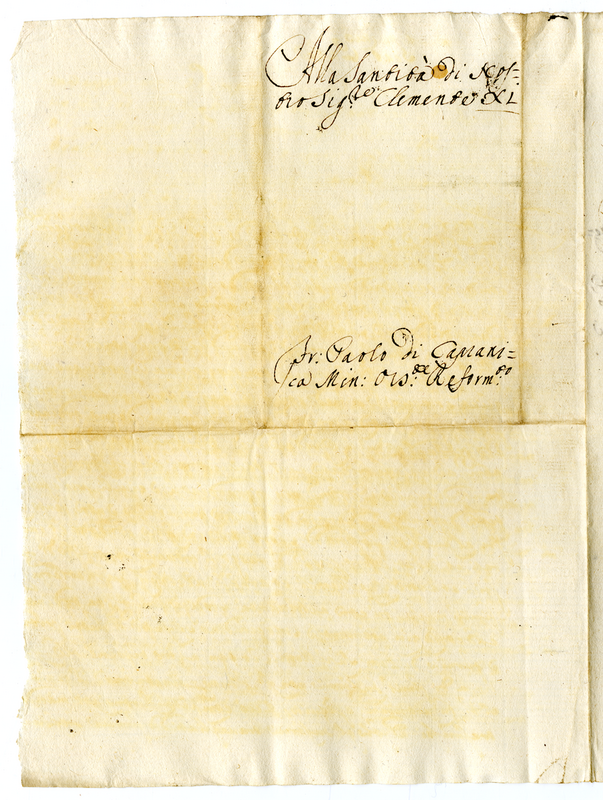 Alla Santità di Nos=
tro Sig.re Clemente XI
Fr: Paolo di Caprani=
ca Min: Oss.te Reform.to